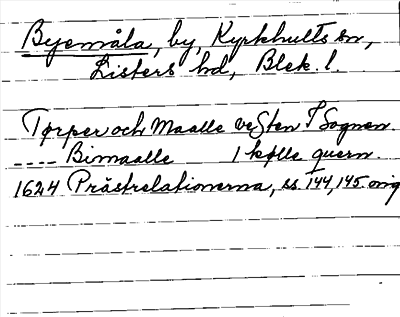 Byemåla, by, Kyrkhults sn,
Listers hd, Blek. l.
Torper och Maalle vesten I Sognen.
---- Bimaalle 1 kølle quern.
1624 Prästrelationerna, ss. 144, 145. orig